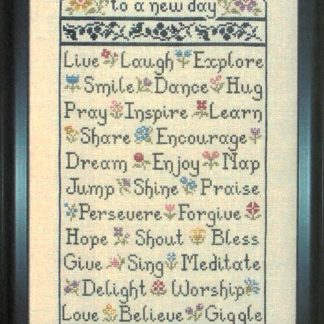 to a new day
Live Laugh Explore
Smile Dance Hug
Pray Inspire Learn
Share Encourage
Dream Enjoy Nap
Jump Shine Praise
Persevere Forgive
Hope Shout Bless
Give Sing Meditate
Delight Worship
Love Believe Giggle